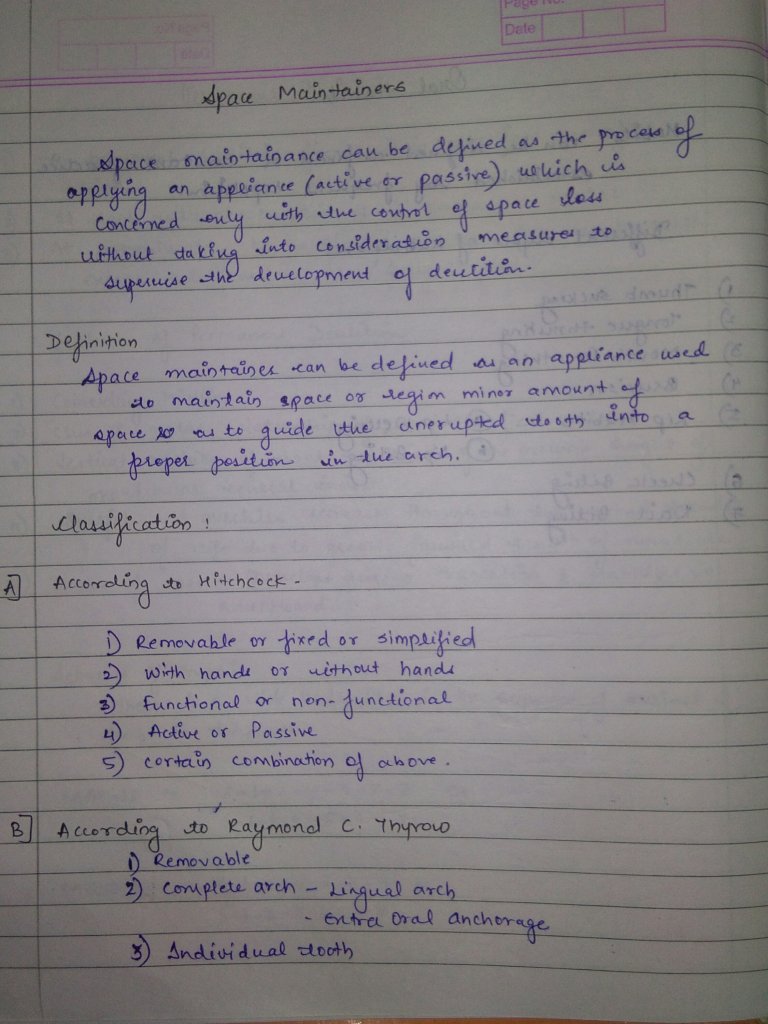 Page No.
Date
Space Maintainers
Space maintainance can be defined as the process of
applying an appliance (active or passive) which is
concerned only with the control of space loss
without taking into consideration measures to
supervise the development of dentition.
Definition
Space maintainer can be defined as an appliance used
to maintain space or regim minor amount of
space so as to guide the unerupted tooth into a
proper position in the arch.
Classification :
A] According to Hitchcock -
1) Removable or fixed or simplified
2) With hands or without hands
3) Functional or non-functional
4) Active or Passive
5) certain combination of above.
B] According to Raymond C. Thyrow
1) Removable
2) Complete arch - Lingual arch
- Extra Oral anchorage
3) Individual tooth